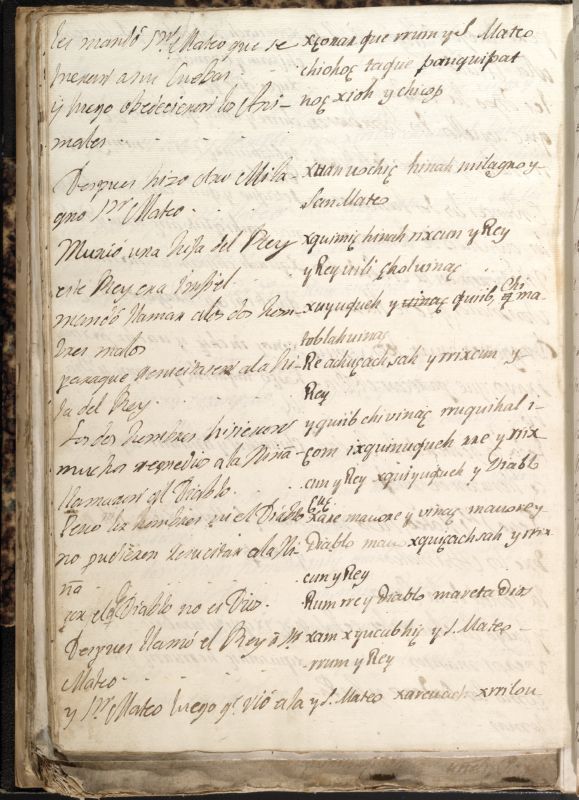 les mandó Sn. Mateo que se
fuesen a sus Cuebas
y luego obedecieron los Ani-
males
Despues hizo otro Mila-
gro Sn. Mateo.
Murió una hija del Rey
este Rey era Infiel
mandó llamar a los dos hom-
bres malos
paraque resucitasen ala hi-
ja del Rey.
Los dos hombres hisieron
mucho remedio ala Niña
llamaron al Diablo.
Pero los hombres ni el Diablo
no pudieron resucitar ala Ni-
ña
el Diablo no es Dios.
Despues llamó el Rey á Sn.
Mateo.
y Sn. Mateo luego qe. vió ala
xçonan que rrum y S. Mateo
chichoç taque panquipat
noç xioh y chicop
xuan uochiç hinah milagro y
San Mateo
xquimiç hinah rixcun y Rey
y Rey inli çhol uinaç
xuyuqueh y uinaç quiib, chi ma-
toblah uinaç
Re aihuçachsah y rrixcun y
Rey
y quiib chi vinaç ruquihal i-
çom ixquinuqueh rre y rrix
cun y Rey xquiyuqueh y Diablo
xare mauore y vinaç mauore y
Diablo mau xquiçachsah y rrix
cun y Rey
Rum rre y Diablo mareta Dios
xam xyucubhiç y S. Mateo
rrum y Rey
y S. Mateo xareuach xmilou